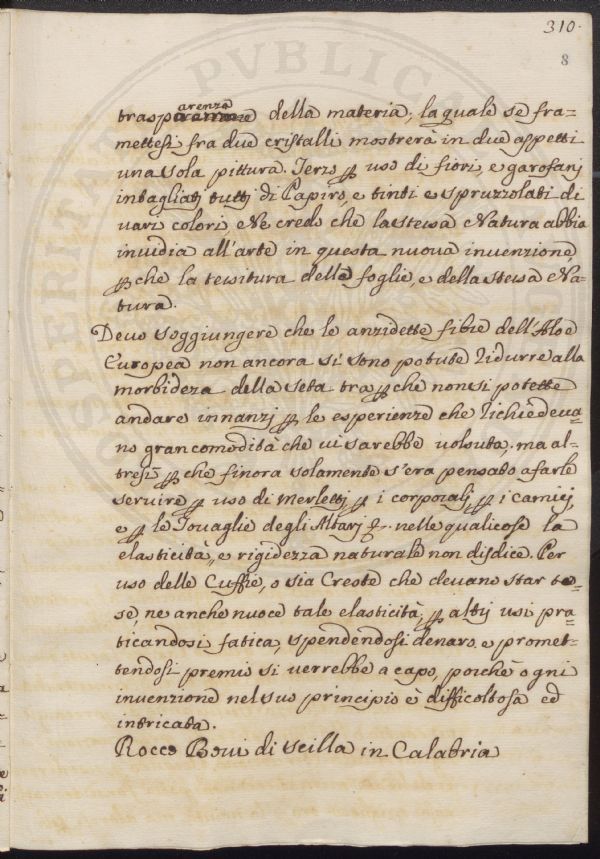 310.
8
trasparenza della materia, la quale se fra-
mettesi fra due cristalli mostrerà in due aspetti
una sola pittura. Terzo ꝑ uso di fiori, e garofanj
intagliatj tuttj di Papiro, e tinti e spruzzolati di
varj colori, Ne credo che la stessa Natura abbia
invidia all'arte in questa nuova invenzione,
ꝑche la tessitura delle foglie, e della stessa Na-
tura.
Devo soggiungere che le anzidette fibre dell'Aloe
Europea non ancora si sono potute ridurre alla
morbideza della seta tra ꝑche non si potette
andare innanzj ꝑ le esperienze che richiedeva-
no gran comodità che vi sarebbe voluta, ma al-
tresì ꝑche finora solamente s'era pensato a farle
servire ꝑ uso di Merlettj, ꝑ i corporalj, ꝑ i camicj,
e ꝑ le Tovaglie degli Altarj nelle quali cose la
elasticità, e rigidezza naturale non disdice. Per
uso delle Cuffie, o sia Creste che devano star te-
se, ne anche nuoce tale elasticità, ꝑ altrj usi pra-
ticandosi fatica, spendendosi denaro, e promet-
tendosi premio si verrebbe a capo, poichè ogni
invenzione nel suo principio è difficoltosa ed
intricata.
Rocco Bovi di Scilla in Calabria